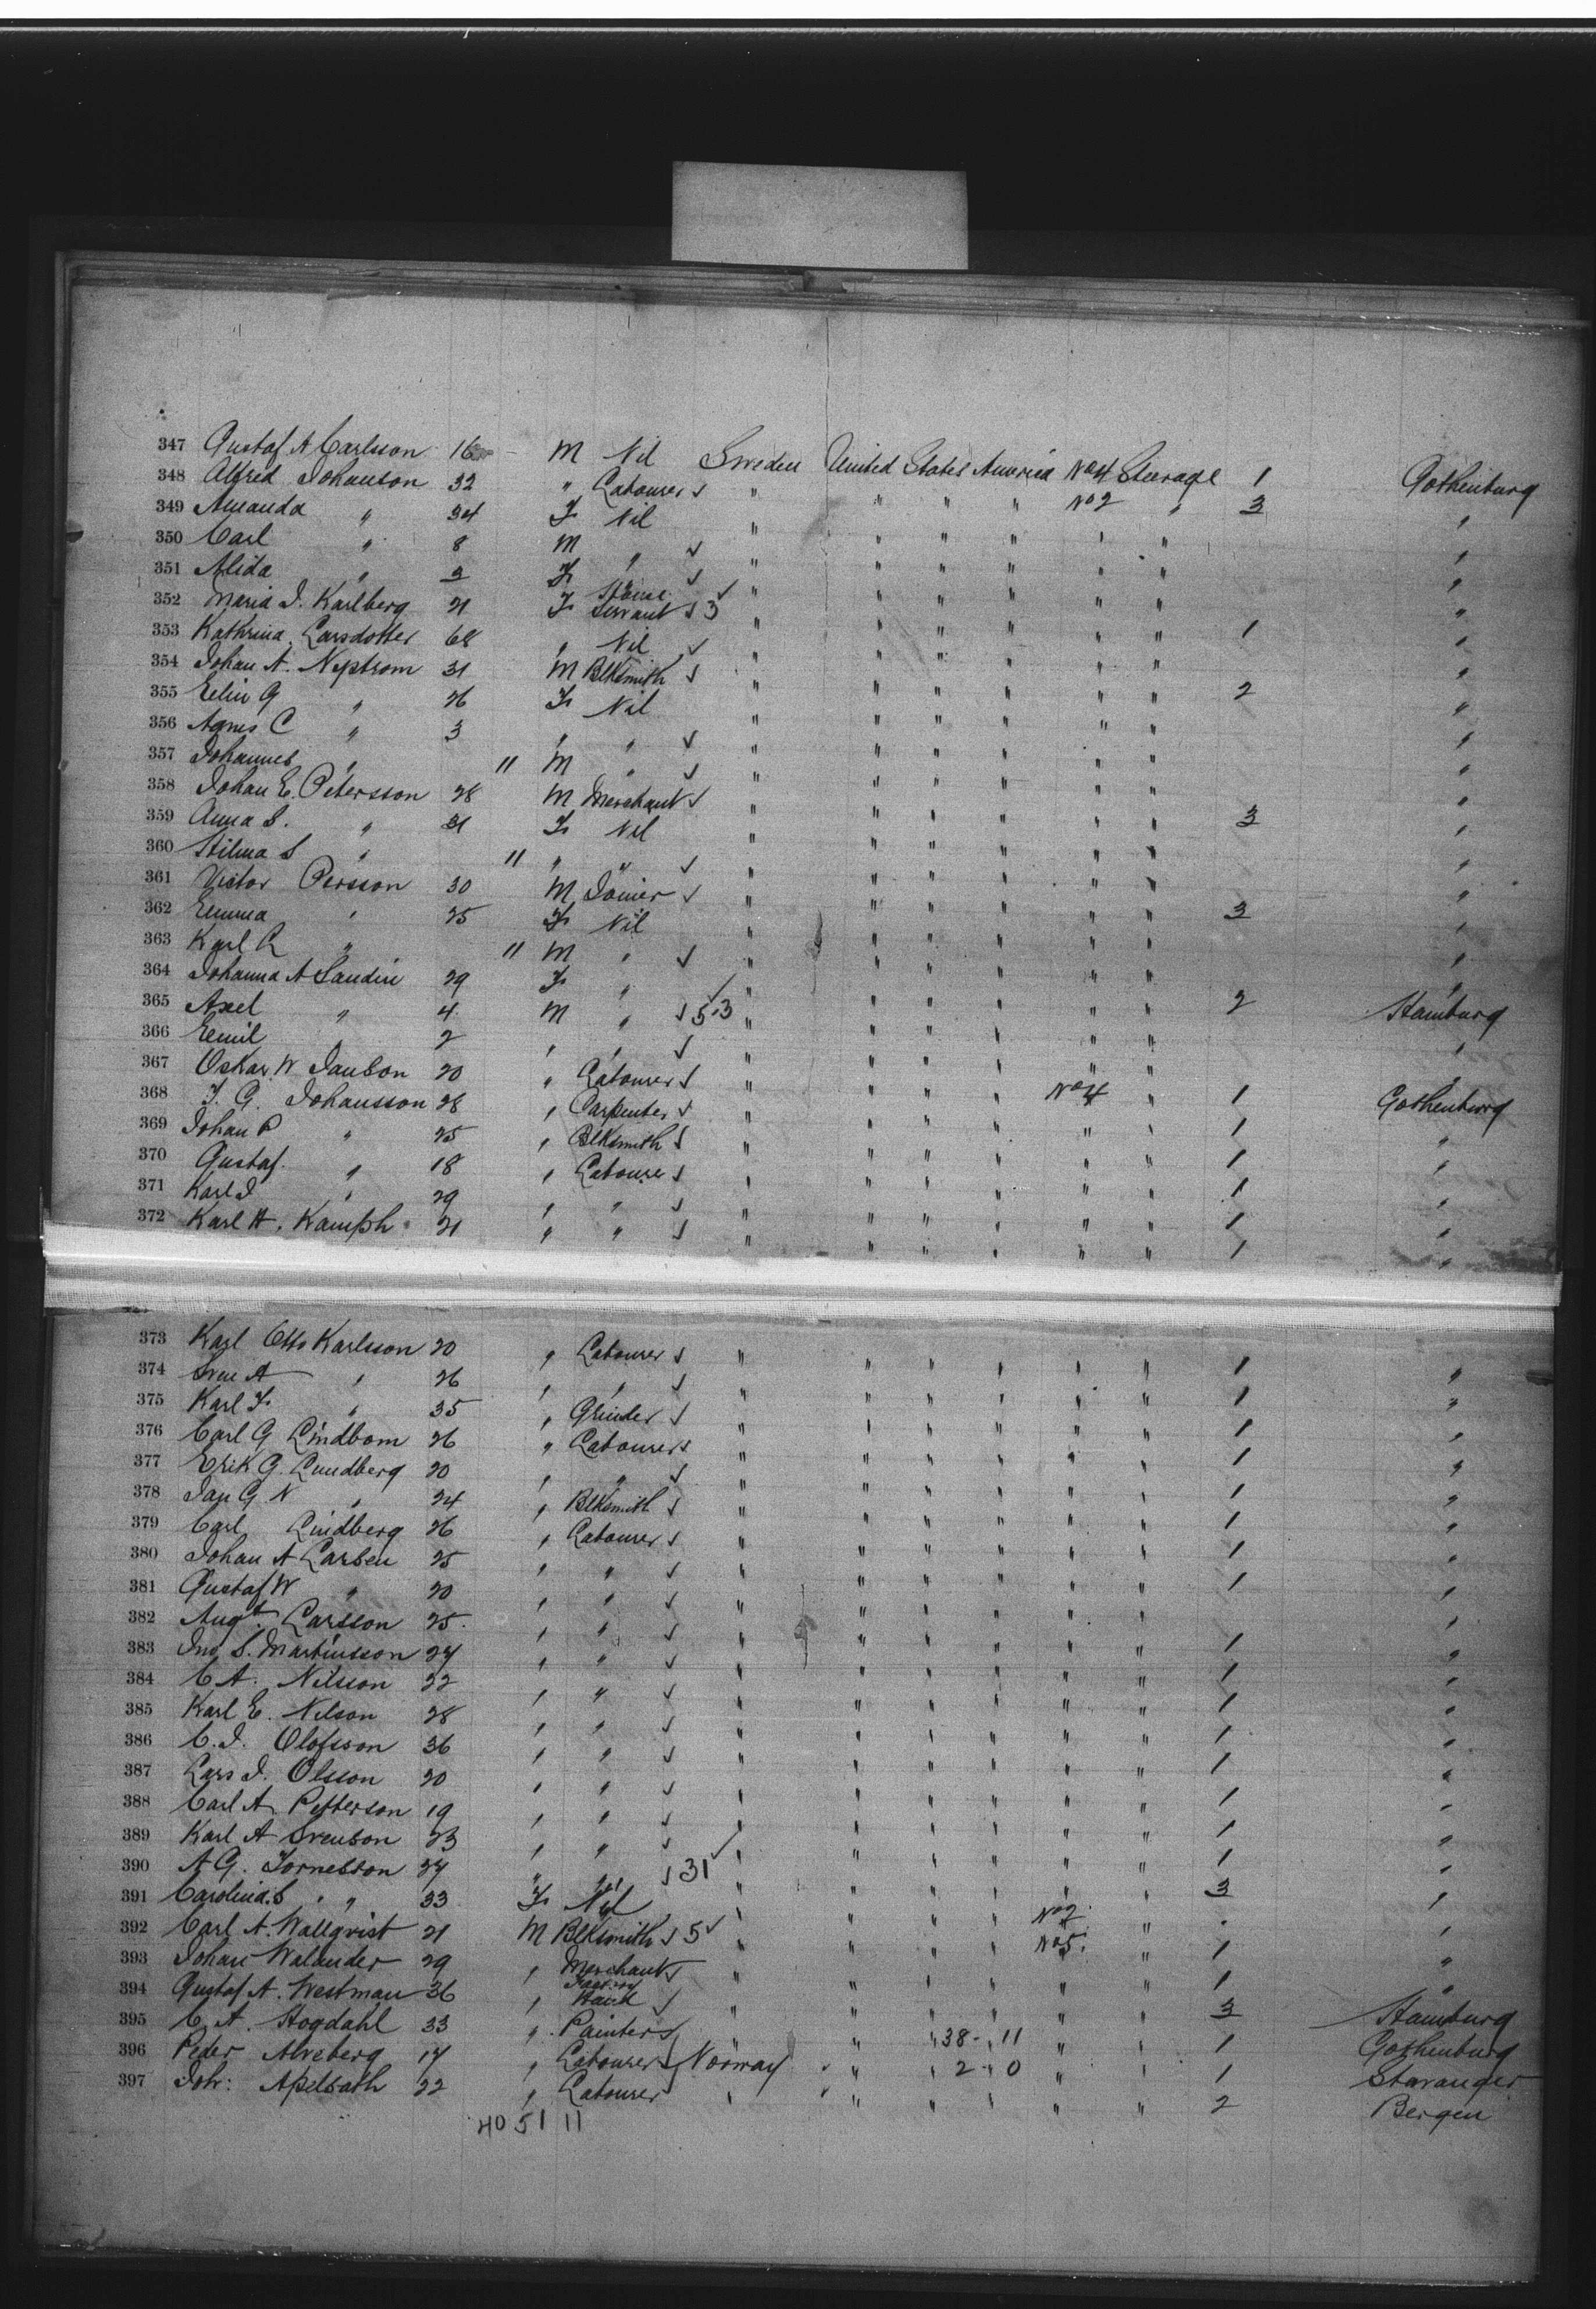 347 Gustaf A Carlsson 16 M Nil Sweden United States America No 4 Steerage 1 Gothenburg
348 Alfred Johanson 32 " Labourer " " " " No 2 " 3 "
349 Amanda " 34 F Nil " " " " " " "
350 Carl " 8 M " " " " " " " "
351 Alida " 3 F " " " " " " " "
352 Maria J. Karlberg 21 F House Servant 3 " " " " " " 1 "
353 Kathrina Larsdotter 68 " Nil " " " " " " "
354 Johan A. Nystrom 31 M Blksmith " " " " " " 2 "
355 Elin G " 26 F Nil " " " " " " "
356 Agnes C " 3 " " " " " " " " "
357 Johannes " " M " " " " " " " "
358 Johan E. Petersson 28 M Merchant " " " " " " 3 "
359 Anna S. " 31 F Nil " " " " " " "
360 Hilma S " " " " " " " " " " "
361 Victor Persson 30 M Joiner " " " " " " 3 "
362 Emma " 25 F Nil " " " " " " "
363 Karl R " " M " " " " " " " "
364 Johanna A Sandin 29 F " " " " " " " 2 Hamburg
365 Axel " 4 M " 5.3 " " " " " " "
366 Emil " 2 " " " " " " " "
367 Oskar W Janson 20 " Labourer " " " " No 4 " 1 Gothenburg
368 F. G. Johansson 28 " Carpenter " " " " " " 1 "
369 Johan P " 25 " Blksmith " " " " " " 1 "
370 Gustaf. " 18 " Labourer " " " " " " 1 "
371 Karl J " 29 " " " " " " " " 1 "
372 Karl H. Kamph 21 " " " " " " " " 1 "
373 Karl Otto Karlsson 20 " Labourer " " " " " " 1 "
374 Sven A " 26 " " " " " " " " 1 "
375 Karl F. " 35 " Grinder " " " " " " 1 "
376 Carl G Lindbom 26 " Labourer " " " " " " 1 "
377 Erik G. Lundberg 20 " " " " " " " " 1 "
378 Jan G N " 24 " Blksmith " " " " " " 1 "
379 Carl Lindberg 26 " Labourer " " " " " " 1 "
380 Johan A Larsen 25 " " " " " " " " 1 "
381 Gustaf W " 20 " " " " " " " " "
382 Augt. Larsson 25 " " " " " " " " 1 "
383 Jno S. Martinsson 27 " " " " " " " " 1 "
384 C A. Nilsson 22 " " " " " " " " 1 "
385 Karl E. Nilson 28 " " " " " " " " 1 "
386 C. J. Olofsson 36 " " " " " " " " 1 "
387 Lars J. Olsson 20 " " " " " " " " 1 "
388 Carl A Petterson 19 " " " " " " " " 1 "
389 Karl A Svenson 23 " " " " " " " " 1 "
390 A G. 27 " " 31 " " " " " " 3 "
391 Carolina S " 33 F Nil " " " " No 2 " "
392 Carl A. Wallqvist 21 M Blksmith 5 " " " " No 5. " 1 "
393 Johan Walander 29 " Merchant " " " " " " 1 "
394 Gustaf A. Westman 36 " Factory Hand " " " " " " 3 Hamburg
395 C. A. Hogdahl 33 " Painter " " " 38-11 " " 1 Gothenburg
396 Peder Alveberg 17 " Labourer Norway " " 2-0 " " 1 Stavanger
397 Joh: 22 " Labourer " " " " " " 2 Bergen
40 51 11